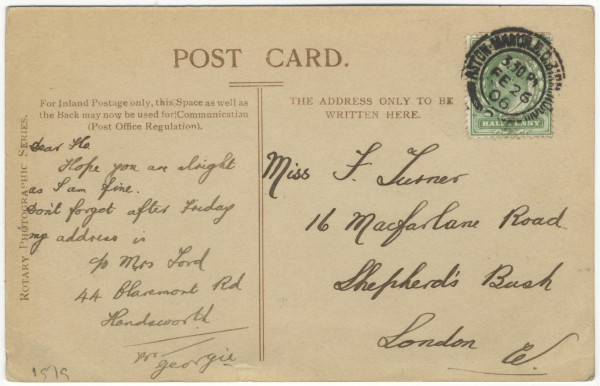 POST CARD.
For Inland Postage only, this Space as well as
the Back may now be used for Communication
(Post Office Regulation).
THE ADDRESS ONLY TO BE
WRITTEN HERE.
ROTARY PHOTOGRAPHIC SERIES.
Dear Flo
Hope you are alright
as I am fine.
Don't forget after Friday
my address is
c/o Mrs Ford
44 Claremont Rd
Handsworth
Georgie
Miss F. Turner
16 Macfarlane Road
Shepherd's Bush
London
W.
3.30 PM
FE 26
06
HALFPENNY